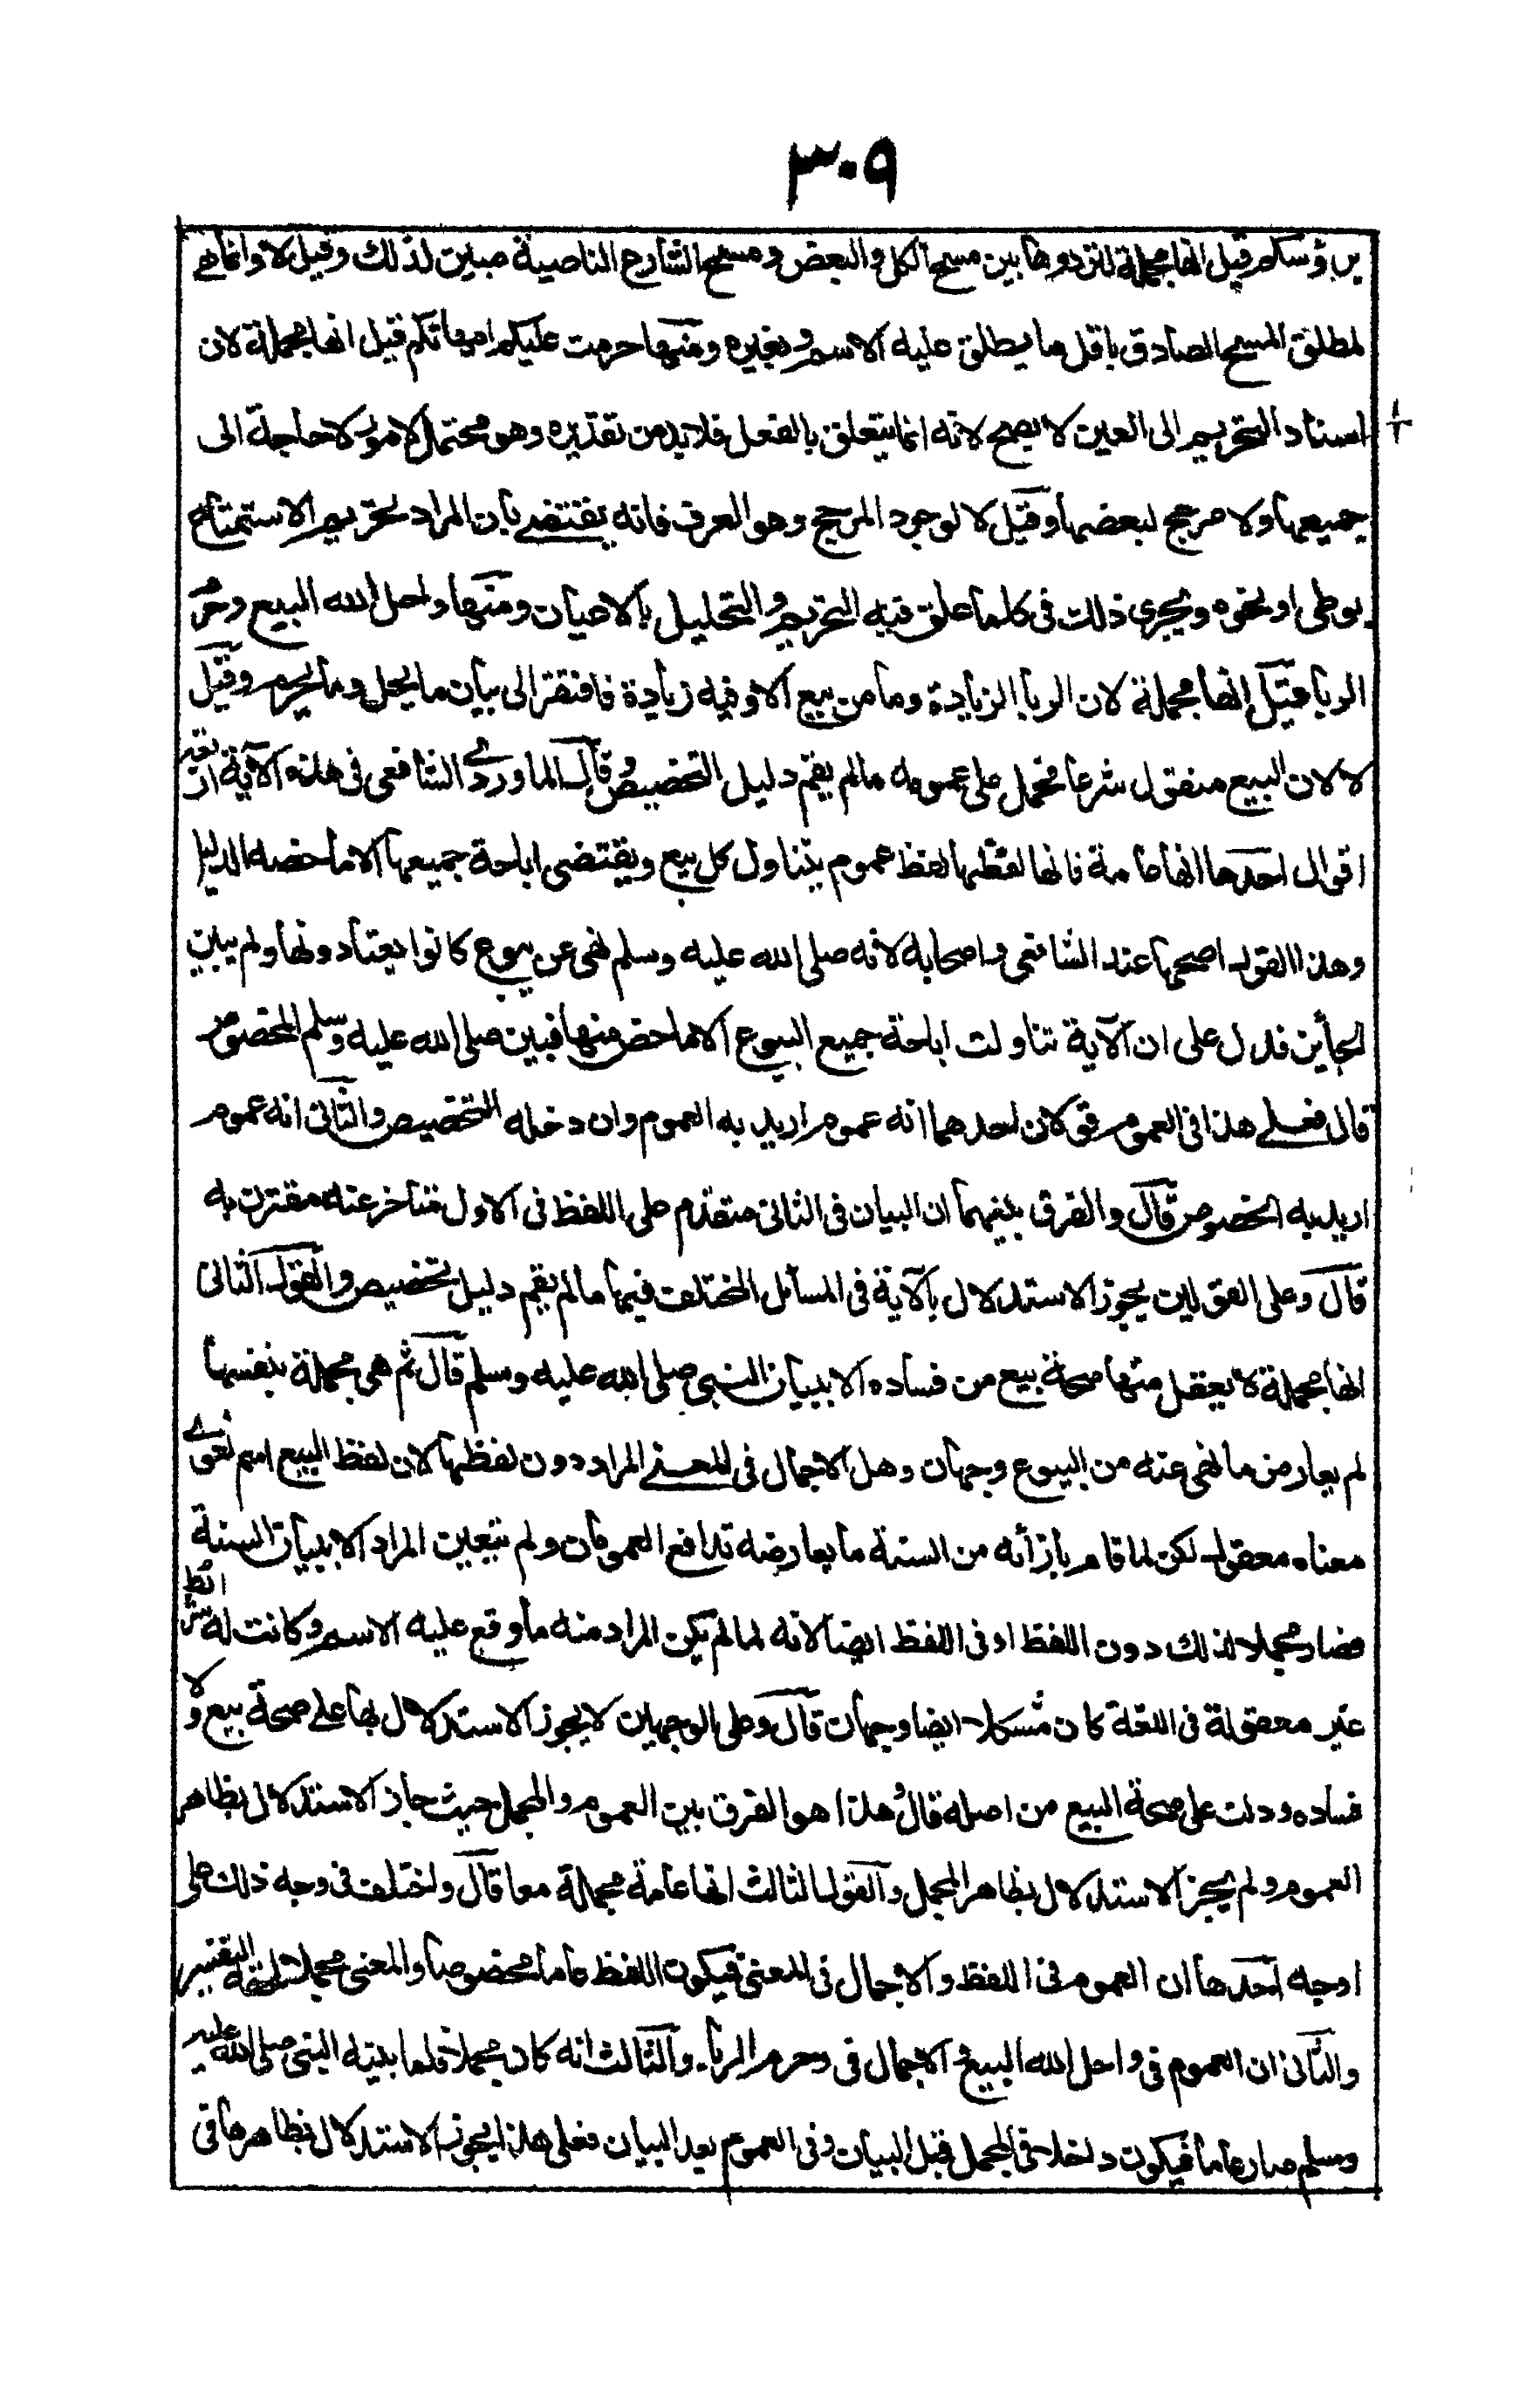 ٣٠٩
برؤسكم قيل انها مجملة لترددها بين مسح الكل والبعض ومسح الشارع الناصية مبين لذلك وقيل لا وانما هي
لمطلق المسح الصادق باقل ما يطلق عليه الاسم وبغيره ومنها حرمت عليكم امهاتكم قيل انها مجملة لان
اسناد التحريم الى العين لا يصح لانه انما يتعلق بالفعل فلا بد من تقديره وهو محتمل لامور لا حاجة الى
جميعها ولا مرجح لبعضها وقيل لا لوجود المرجح وهو العرف فانه يقتضي بان المراد تحريم الاستمتاع
بوطى او نحوه ويجرى ذلك فى كلما علق فيه التحريم والتحليل بالاعيان ومنها واحل الله البيع وحرم
الربا قيل إنها مجملة لان الربا الزيادة وما من بيع الا وفيه زيادة فافتقر الى بيان ما يحل وما يحرم وقيل
لا لان البيع منقول شرعا فحمل على عمومه مالم يقم دليل التخصيص وقال الماوردي للشافعى فى هذه الآية اربعة
اقوال احدها انها عامة فانها لفظها لفظ عموم يتناول كل بيع ويقتضى اباحة جميعها الا ما خصه الدليل
وهذا القول اصحها عند الشافعى واصحابه لانه صلى الله عليه وسلم نهى عن بيوع كانوا يعتادونها ولم يبين
الجائز فدل على ان الآية تناولت اباحة جميع البيوع الا ما خص منها فبين صلى الله عليه وسلم المخصوص
قال فعلى هذا فى العموم قولان احدهما انه عموم اريد به العموم وان دخله التخصيص والثانى انه عموم
اريد به الخصوص قال والفرق بينهما ان البيان فى الثانى متقدم على اللفظ فى الاول متاخر عنه مقترن به
قال وعلى القولين يجوز الاستدلال بالآية فى المسائل المختلف فيها مالم يقم دليل تخصيص والقول الثانى
انها مجملة لا يعقل منها صحة بيع من فساده الا ببيان النبى صلى الله عليه وسلم قال ثم هى مجملة بنفسها
لم يعارض ما نهى عنه من البيوع وجهان وهل الاجمال فى المعنى المراد دون لفظها لان لفظ البيع اسم لغوي
معناه معقول لكن لما قام بازائه من السنة ما يعارضه تدافع العمومان ولم يتعين المراد الا ببيان السنة
فصار مجملا لذلك دون اللفظ او فى اللفظ ايضا لانه لما لم يكن المراد منه ما وقع عليه الاسم وكانت له شرائط
غير معقولة فى اللغة كان مشكلا ايضا وجهان قال وعلى الوجهين لا يجوز الاستدلال بها على صحة بيع ولا
فساده ودلت على صحة البيع من اصله قال وهذا هو الفرق بين العموم والمجمل حيث جاز الاستدلال بظاهر
العموم ولم يجز الاستدلال بظاهر المجمل والقول الثالث انها عامة مجملة معا قال واختلف فى وجه ذلك على
اوجه احدها ان العموم فى اللفظ والاجمال فى المعنى فيكون اللفظ عاما مخصوصا والمعنى مجملا لحقه التفسير
والثانى ان العموم فى واحل الله البيع والاجمال فى وحرم الربا والثالث انه كان مجملا فلما بينه النبى صلى الله عليه
وسلم صار عاما فيكون داخلا فى المجمل قبل البيان وفى العموم بعد البيان فعلى هذا يجوز الاستدلال بظاهرها فى